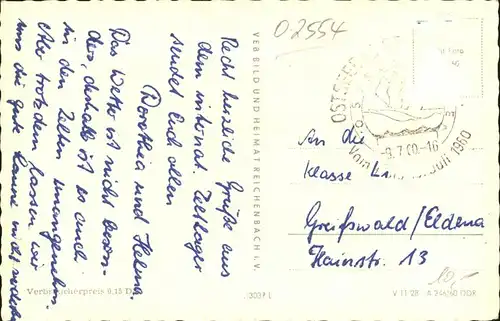 02554
Recht herzliche Grüße aus
dem internat. Zeltlager
sendet Euch allen
Dorothea und Helma.
Das Wetter ist nicht beson-
ders, deshalb ist es auch
in den Zelten unangenehm.
Aber trotzdem lassen wir
uns die gute Laune nicht
VEB BILD UND HEIMAT REICHENBACH I. V.
OSTSEE
Juli 1960
-9.7.60-16
An die
Klasse
Greifswald/Eldena
Hainstr. 13
10,-
Verbraucherpreis 0,15 D
V 11 28 A 246/60 DDR